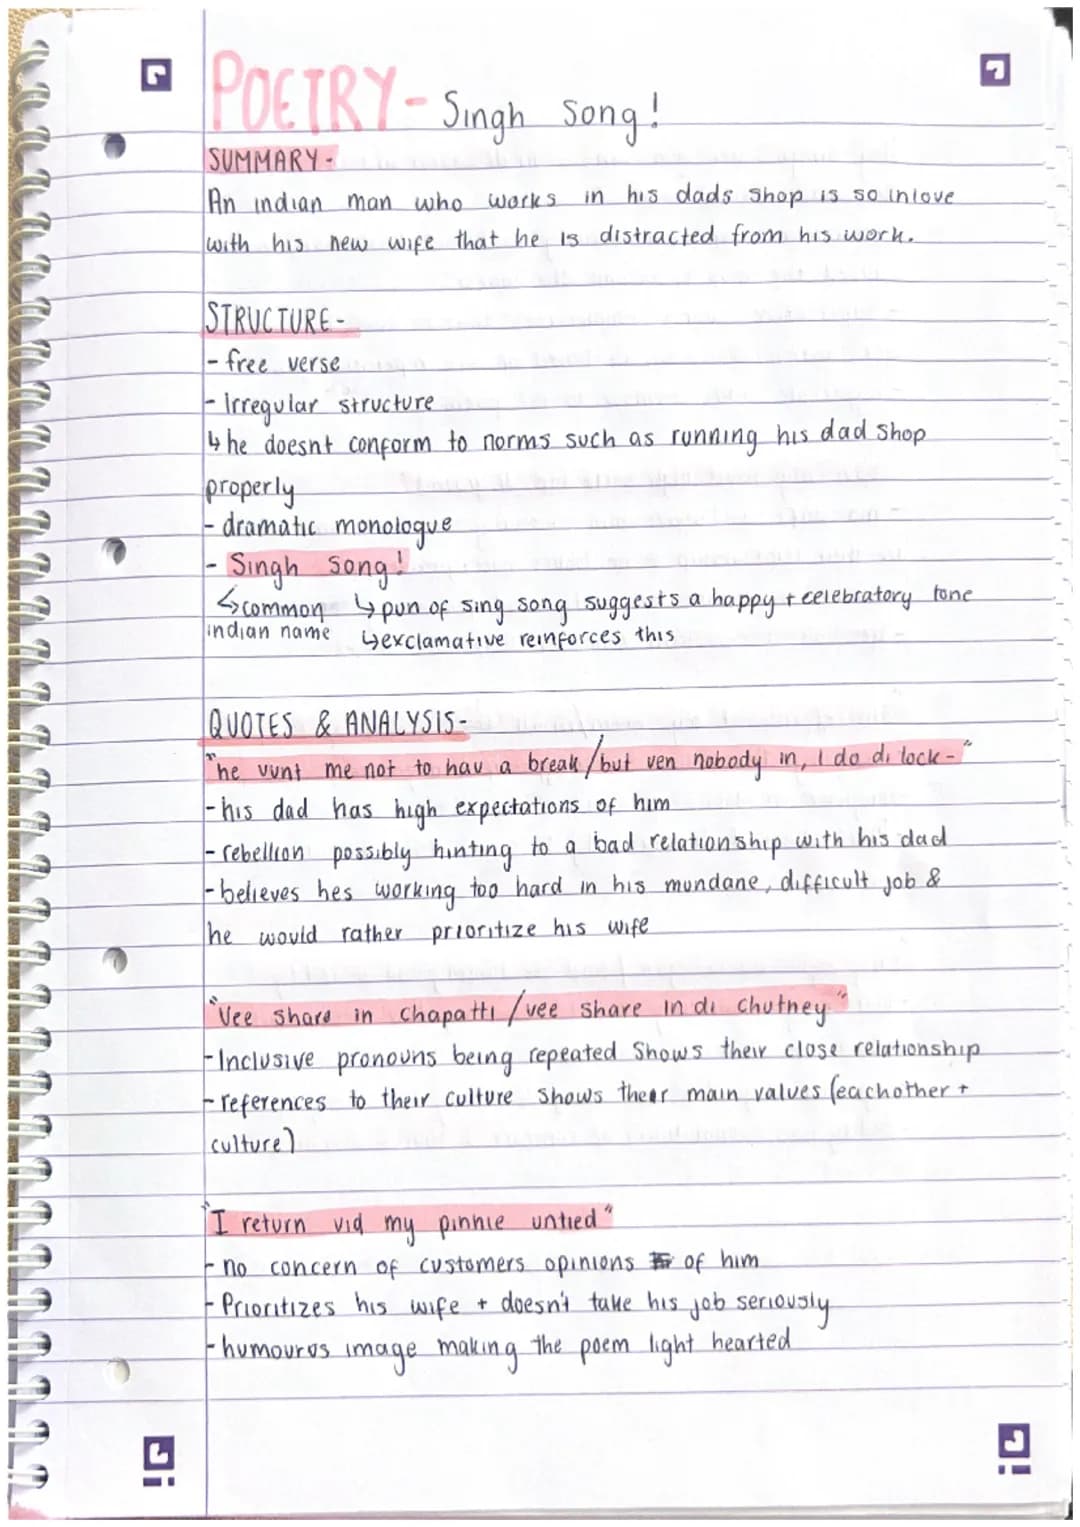 POETRY - Singh Song!
SUMMARY -
An indian man who works in his dads shop is so inlove
with his new wife that he is distracted from his work.
STRUCTURE -
- free verse
- Irregular structure
↳ he doesnt conform to norms such as running his dad shop
properly
- dramatic monologue
- Singh Song!
↳ common ↳ pun of sing song suggests a happy + celebratory tone
indian name ↳ exclamative reinforces this
QUOTES & ANALYSIS -
"he vunt me not to hav a break / but ven nobody in, I do di lock -"
- his dad has high expectations of him
- rebellion possibly hinting to a bad relationship with his dad
- believes hes working too hard in his mundane, difficult job &
he would rather prioritize his wife
"Vee share in chapatti / vee share in di chutney"
- Inclusive pronouns being repeated shows their close relationship
- references to their culture shows their main values (eachother +
culture)
"I return vid my pinnie untied"
- no concern of customers opinions of him
- Prioritizes his wife + doesn't take his job seriously
- humourus image making the poem light hearted